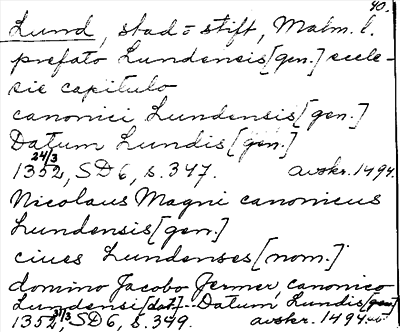 40.
Lund, stad o stift, Malm. l.
prefato Lundensis [gen.] eccle-
sie capitulo
canonici Lundensis [gen.]
Datum Lundis [gen.]
24/3
1352, SD 6, s. 347. avskr. 1494.
Nicolaus Magni canonicus
Lundensis [gen.]
ciues Lundenses [nom.]
domino Jacobo Jermer, canonico
Lundensi [dat] - Datum Lundis [gen]
31/3
1352, SD 6, s. 349. avskr. 1494